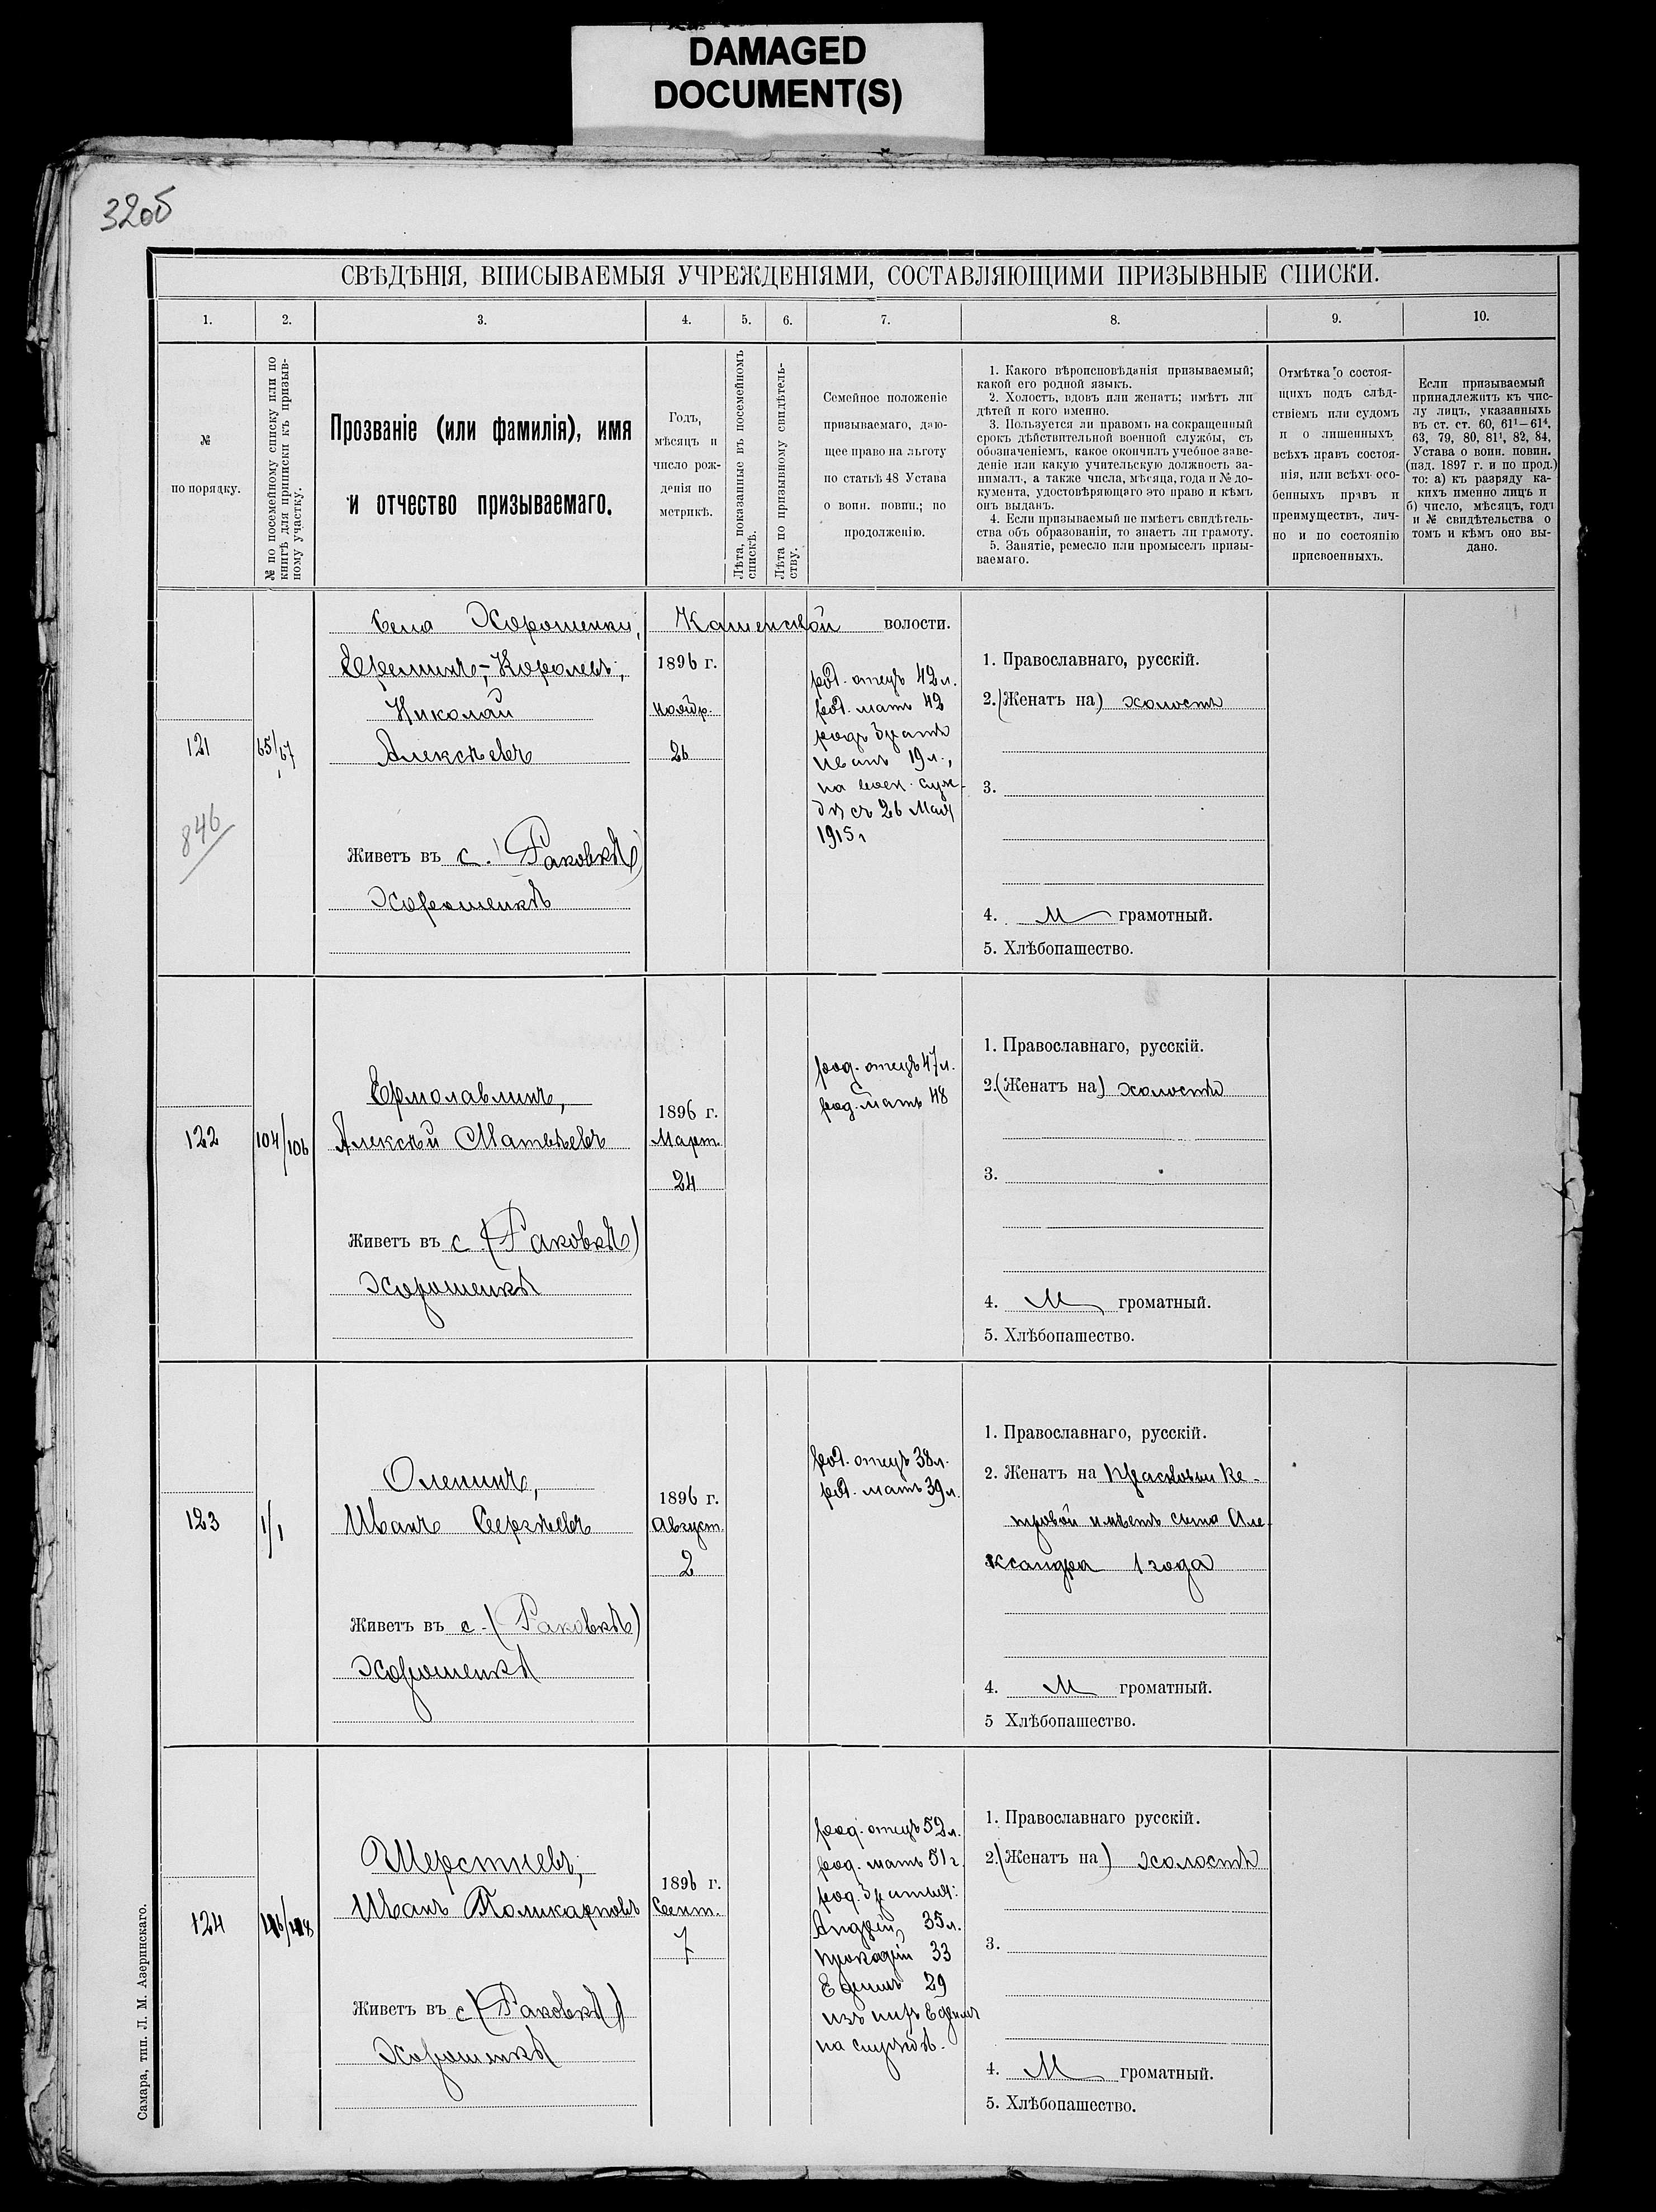 DAMAGED
DOCUMENT(S)
32об
СВѢДѢНІЯ, ВПИСЫВАЕМЫЯ УЧРЕЖДЕНІЯМИ, СОСТАВЛЯЮЩИМИ ПРИЗЫВНЫЕ СПИСКИ.
1. 2. 3. 4. 5. 6. 7. 8. 9. 10.
№
по порядку.
№ по посемейному списку или по
книгѣ для приписки къ призыв-
ному участку.
Прозваніе (или фамилія), имя
и отчество призываемаго.
Годъ,
мѣсяцъ и
число рож-
денія по
метрикѣ.
Лѣта, показанные въ посемейномъ
спискѣ.
Лѣта по призывному свидѣтель-
ству.
Семейное положеніе
призываемаго, даю-
щее право на льготу
по статьѣ 48 Устава
о воин. повин.; по
продолженію.
1. Какого вѣроисповѣданія призываемый;
какой его родной языкъ.
2. Холостъ, вдовъ или женатъ; имѣтъ ли
дѣтей и кого именно.
3. Пользуется ли правомъ на сокращенный
срокъ дѣйствительной военной службы, съ
обозначеніемъ, какое окончилъ учебное заве-
деніе или какую учительскую должность за-
нималъ, а также числа, мѣсяца, года и № до-
кумента, удостовѣряющаго это право и кѣмъ
онъ выданъ.
4. Если призываемый не имѣетъ свидѣтель-
ства объ образованіи, то знаетъ ли грамоту.
5. Занятіе, ремесло или промыселъ призы-
ваемаго.
Отмѣтка о состоя-
щихъ подъ слѣд-
ствіемъ или судомъ
и о лишенныхъ
всѣхъ правъ состоя-
нія, или всѣхъ осо-
бенныхъ правъ и
преимуществъ, лич-
но и по состоянію
присвоенныхъ.
Если призываемый
принадлежитъ къ чис-
лу лицъ, указанныхъ
въ ст. ст. 60, 61¹—61⁴,
63, 79, 80, 81¹, 82, 84,
Устава о воин. повин.
(изд. 1897 г. и по прод.)
то: а) къ разряду ка-
кихъ именно лицъ и
б) число, мѣсяцъ, годъ
и № свидѣтельства о
томъ и кѣмъ оно вы-
дано.
Села Хорошенки, Каменской волости.
121
846
65/67
Еремин-Королевъ,
Николай
Алексѣевъ
Живетъ въ с. (Раковкѣ)
Хорошенкѣ
1896 г.
ноябр.
26
род. отецъ 42 л.
род. мать 42
родъ братъ
Иванъ 19 л.,
на воен. служ-
бѣ съ 26 Мая
1915 г
1. Православнаго, русскій.
2. (Женатъ на) холостъ
3.
4. М грамотный.
5. Хлѣбопашество.
122
104/106
Ермолавлинъ,
Алексѣй Матвѣевъ
Живетъ въ с (Раковкѣ)
Хорошенкѣ
1896 г.
Март.
24
род. отецъ 47 л.
род. мать 48
1. Православнаго, русскій.
2. (Женатъ на) холостъ
3.
4. М громатный.
5. Хлѣбопашество.
123
1/1
Оленинъ,
Иванъ Сергѣевъ
Живетъ въ с. (Раковкѣ)
Хорошенкѣ
1896 г.
Август.
2
род. отецъ 38 л.
род. мать 39 л.
1. Православнаго, русскій.
2. Женатъ на Прасковьи Пе-
тровой имѣетъ сына Але-
ксандра 1 года
4. М громатный.
5 Хлѣбопашество.
124
Шерстневъ,
Иванъ Поликарповъ
Живетъ въ с (Раковкѣ)
Хорошенкѣ
1896 г.
Сент.
7
род. отецъ 52 л.
род. мать 51 г.
род. братья:
Андрій, 35 л.
33
Ефимъ 29
изъ нихъ Ефимъ
на службѣ.
1. Православнаго русскій.
2. (Женатъ на) холостъ
3.
4. М громатный.
5. Хлѣбопашество.
Самара, тип. Л. М. Азеринскаго.